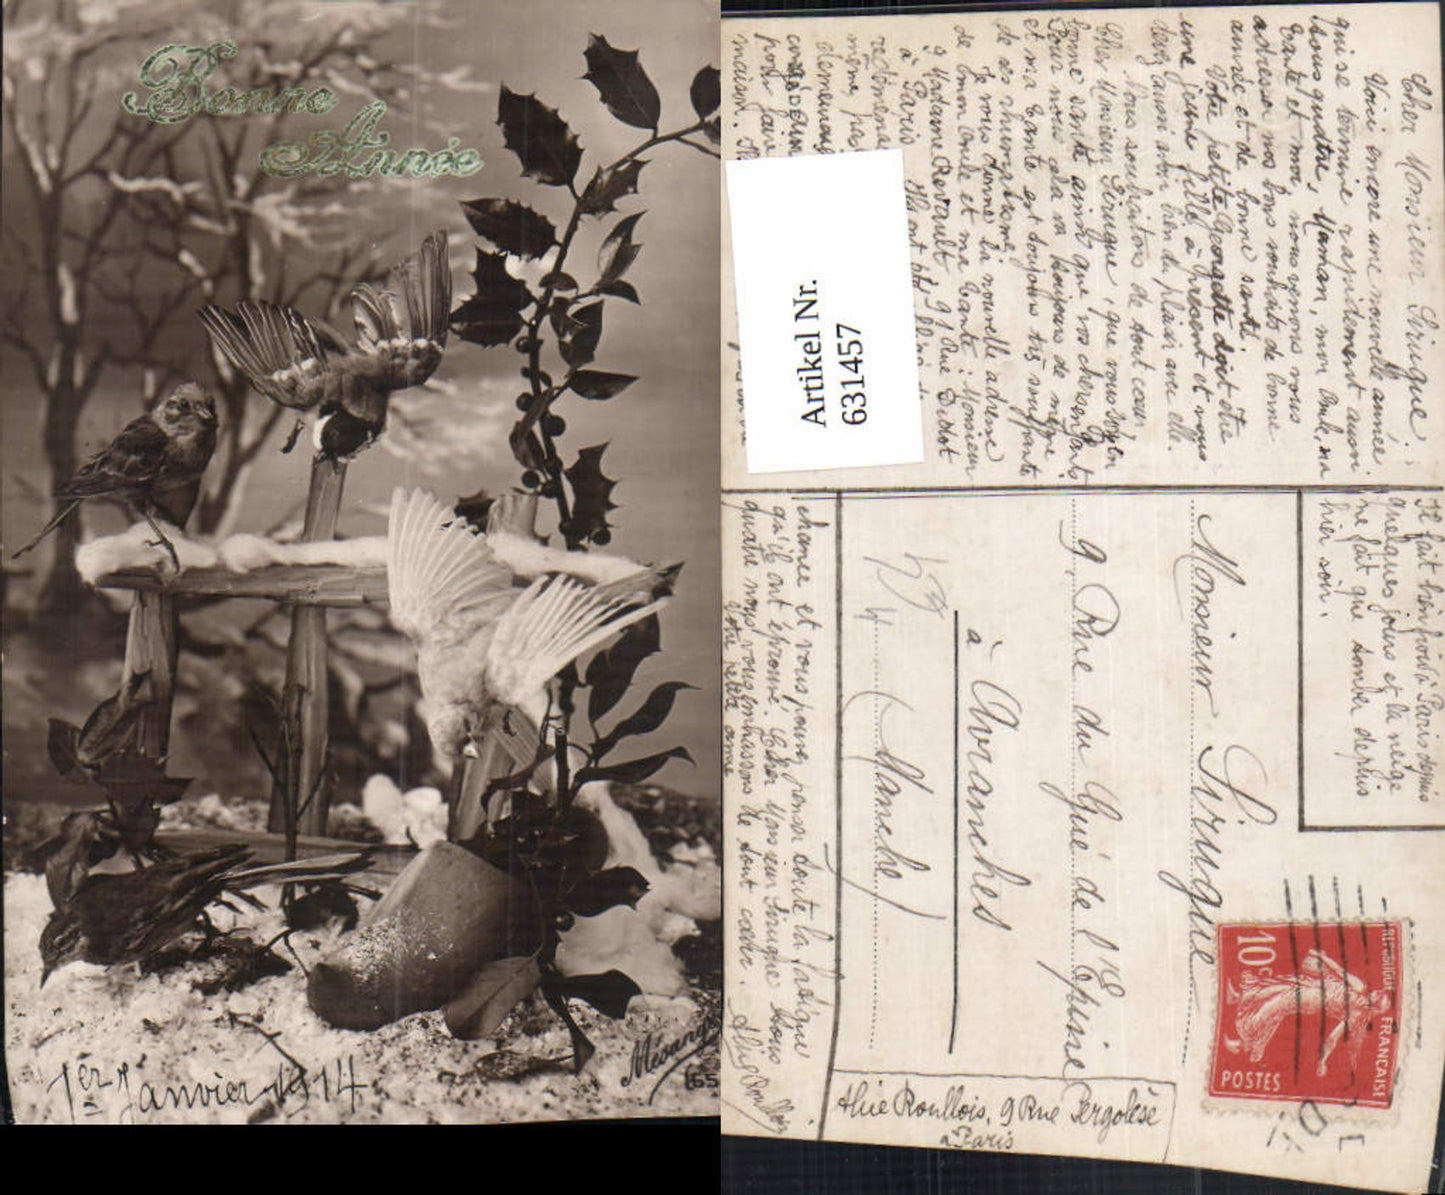 Bonne
Année
1er Janvier 1914
Mésange
Cher Monsieur Sirugue,
Voici encore une nouvelle année
qui se termine rapidement aussi
Tante et moi, nous venons vous
adresser nos bons souhaits de bonne
année et de bonne santé.
Votre petite Georgette doit être
une jeune fille à présent et vous
devez aussi avoir bien du plaisir avec elle.
Nous souhaitons de tout cœur
Cher Monsieur Sirugue, que vous soyez en
bonne santé ainsi que vos chers enfants
Pour nous cela va toujours de même
et ma Tante est toujours très souffrante
de ses rhumatismes.
Je vous donne la nouvelle adresse
de mon Oncle et ma Tante: Monsieur
et Madame Revault 91 Rue Didot
à Paris. Ils ont été
même pas
pour faire
maison. Ils
chance et vous pouvez penser toute la fatigue
qu'ils ont éprouvé. Cher Monsieur Sirugue Nous
quatre nous vous embrassons de tout cœur.
Votre petite amie
Il fait bien froid à Paris depuis
quelques jours et la neige
ne fait que tomber depuis
hier soir.
Artikel Nr.
631457
Monsieur Sirugue
9 Rue du Gué de l'Epine
à Avranches
(Manche)
Roullois, 9 Rue Pergolèse
à Paris
REPUBLIQUE FRANÇAISE
10c
POSTES